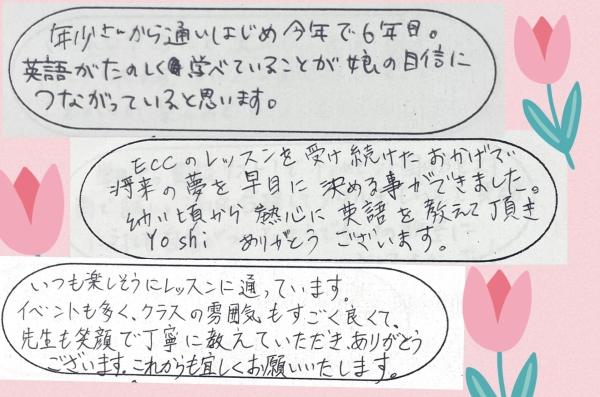 年少さんから通いはじめ今年で6年目。
英語がたのしく学べていることが娘の自信に
つながっていると思います。
ECCのレッスンを受け続けたおかげで
将来の夢を早目に決める事ができました。
幼い頃から熱心に英語を教えて頂き
Yoshi ありがとうございます。
いつも楽しそうにレッスンに通っています。
イベントも多く、クラスの雰囲気もすごく良くて、
先生も笑顔で丁寧に教えていただきありがとう
ございます。これからも宜しくお願いいたします。